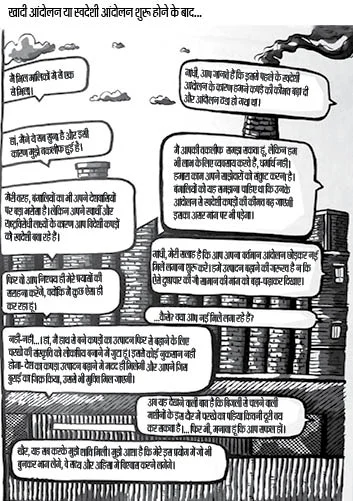 खादी आंदोलन या स्वदेशी आंदोलन शुरू होने के बाद...
मैं मिल मालिकों में से एक
से मिला।
गांधी, आप जानते हैं कि इससे पहले के स्वदेशी
आंदोलन के कारण हमने कपड़े की कीमत बढ़ा दी
और आंदोलन ठंडा हो गया था।
हां, मैंने ये सब सुना है और इसी
कारण मुझे तकलीफ हुई है।
मैं आपकी तकलीफ समझ सकता हूं, लेकिन हम
भी लाभ के लिए व्यवसाय करते हैं, धमार्थ नहीं।
हमारा काम अपने साझेदारों को संतुष्ट करना है।
बंगालियों को यह समझना चाहिए था कि उनके
आंदोलन से स्वदेशी कपड़ों की कीमत बढ़ जाएगी
इसका असर मांग पर भी पड़ेगा।
मेरी तरह, बंगालियों का भी अपने देशवासियों
पर बड़ा भरोसा है। लेकिन अपने स्वार्थी और
राष्ट्रविरोधी लक्ष्यों के कारण आप विदेशी कपड़ों
को स्वदेशी बता रहे हैं।
गांधी, मेरी सलाह है कि आप अपना वर्तमान आंदोलन छोड़कर नई
मिलें लगाना शुरू करें। हमें उत्पादन बढ़ाने की जरूरत है न कि
ऐसे दुष्प्रचार की जो सामान की मांग को बढ़ा-चढ़ाकर दिखाए।
फिर तो आप निश्चय ही मेरे प्रयासों की
सराहना करेंगे, क्योंकि मैं कुछ ऐसा ही
कर रहा हूं।
...कैसे? क्या आप नई मिलें लगा रहे हैं?
नहीं-नहीं...। हां, मैं हाथ से बने कपड़ों का उत्पादन फिर से बढ़ाने के लिए
चरखे की संस्कृति को लोकप्रिय बनाने में जुटा हूं। इससे कोई नुकसान नहीं
होगा- देश का कपड़ा उत्पादन बढ़ाने में मदद ही मिलेगी और आपने जिस
बुराई का जिक्र किया, उससे भी मुक्ति मिल जाएगी।
अब यह देखने वाली बात है कि बिजली से चलने वाली
मशीनों के इस दौर में चरखे का पहिया कितनी दूरी तय
कर सकता है।... फिर भी, मनाता हूं कि आप सफल हों।
खैर, यह सब करके मुझे शांति मिली। मुझे आशा है कि मेरे इस प्रयोग में जो भी
बुनकर भाग लेंगे, वे सत्य और अहिंसा में विश्वास करने लगेंगे।